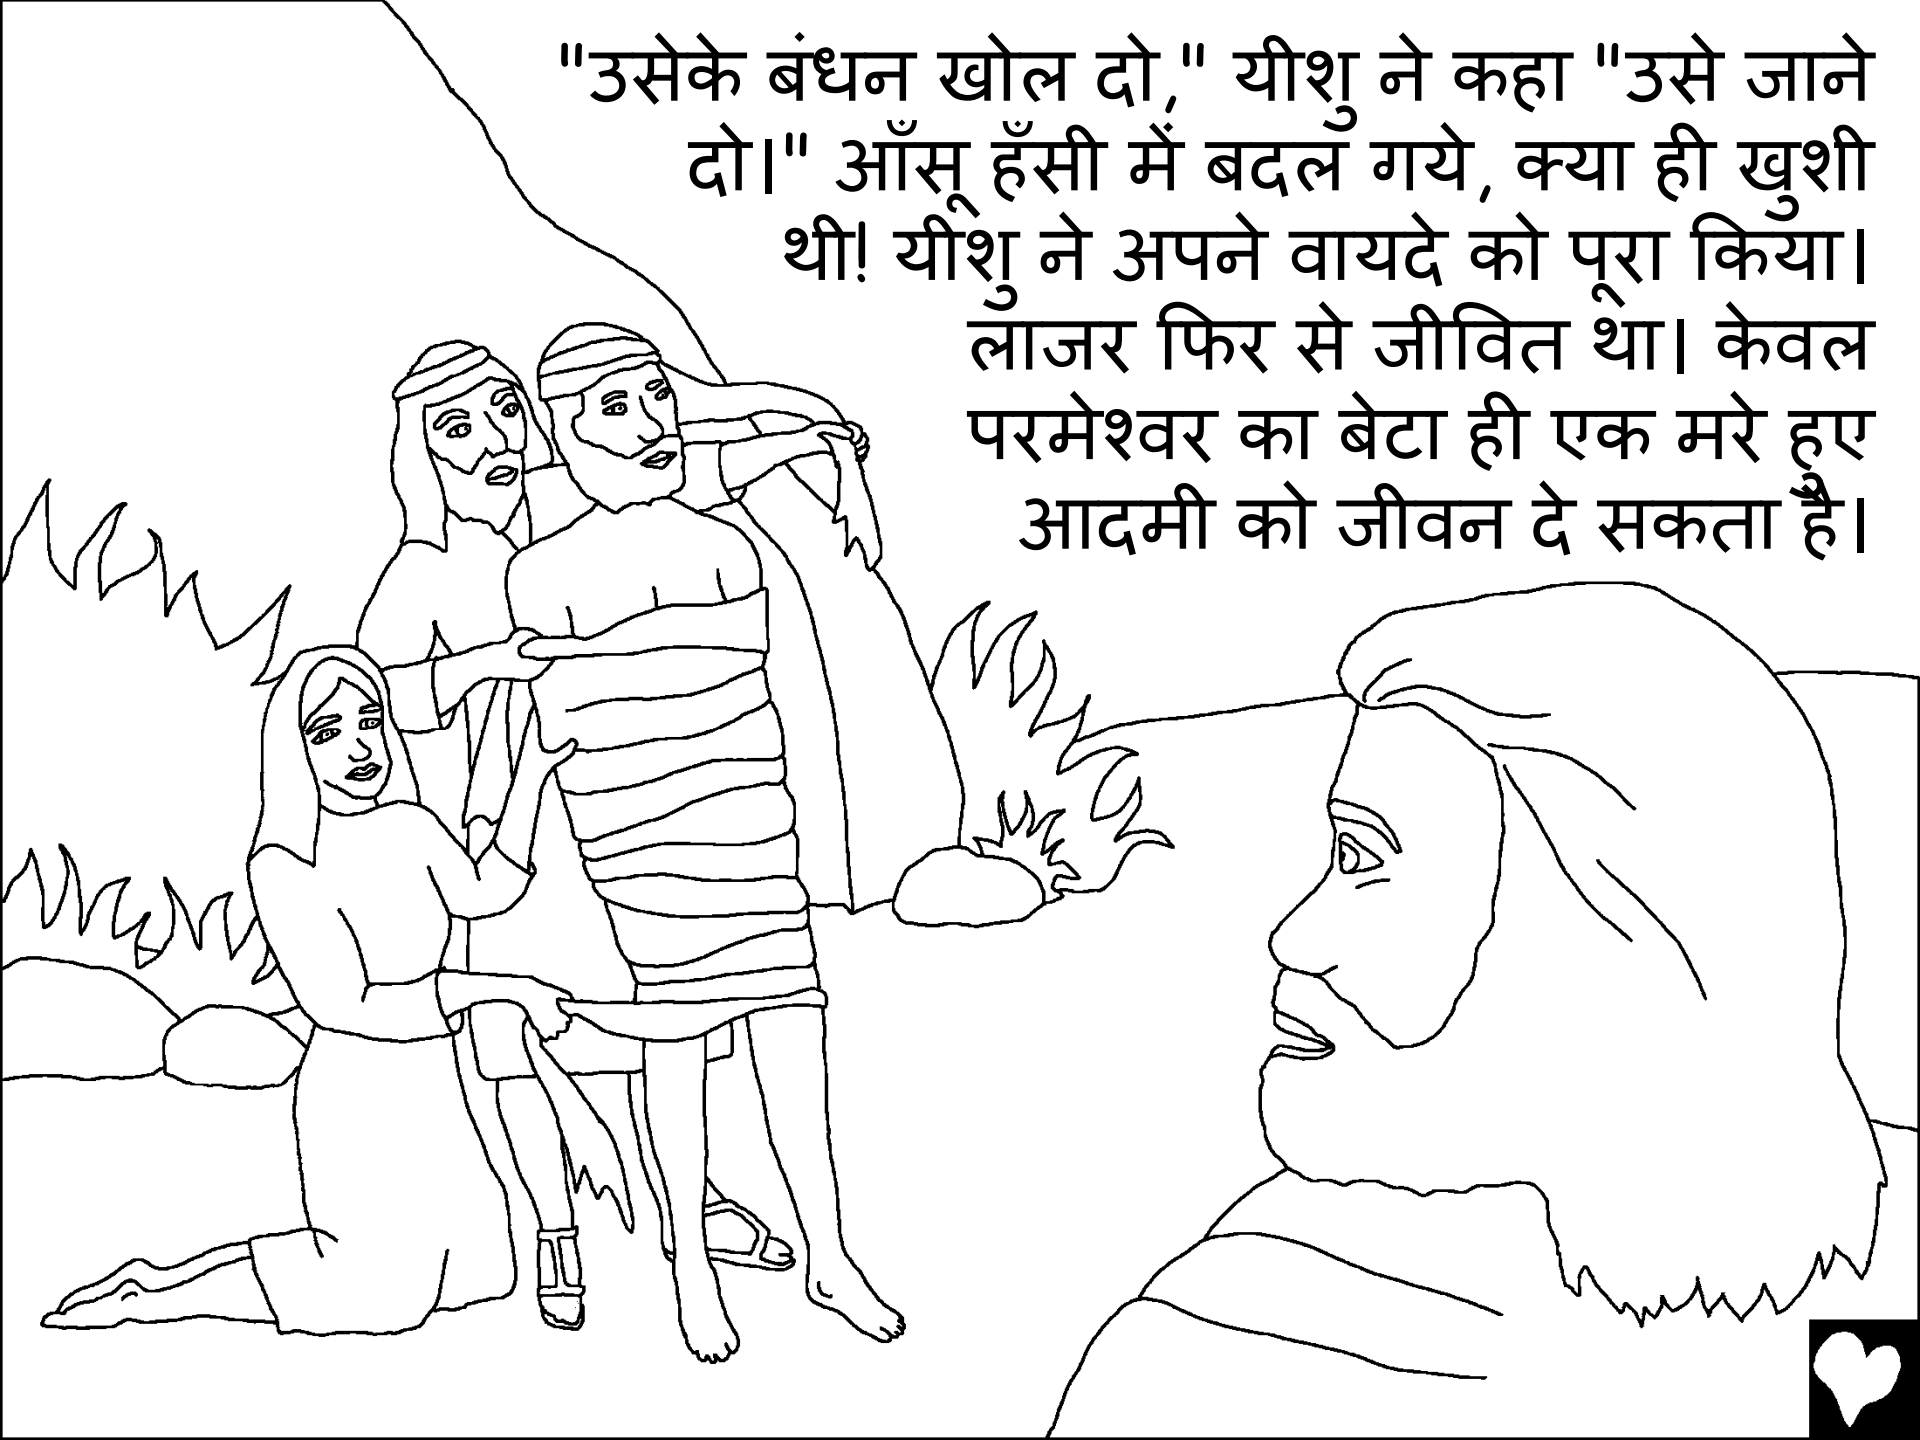 "उसेके बंधन खोल दो," यीशु ने कहा "उसे जाने
दो।" आँसू हँसी में बदल गये, क्या ही खुशी
थी! यीशु ने अपने वायदे को पूरा किया।
लाजर फिर से जीवित था। केवल
परमेश्वर का बेटा ही एक मरे हुए
आदमी को जीवन दे सकता है।